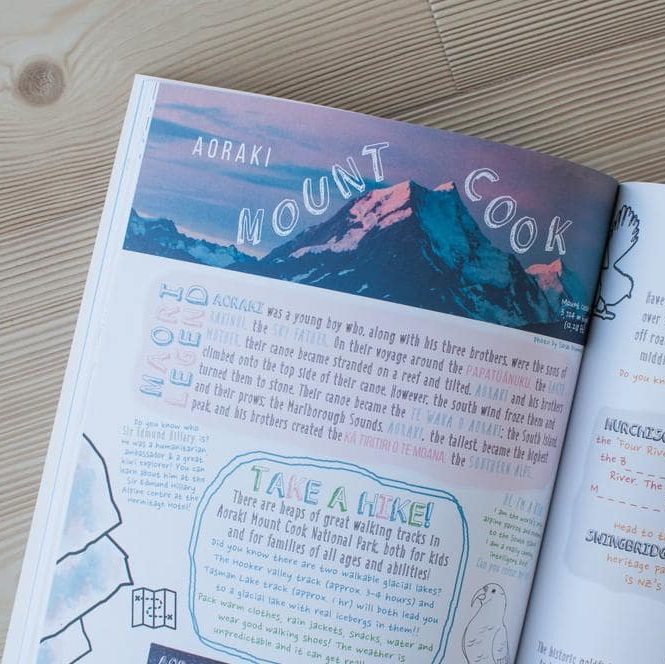 AORAKI
MOUNT COOK
Mount Coo
3,724 m
Photo by Sarah
MAORI
LEGEND
AORAKI was a young boy who, along with his three brothers, were the sons of
RAKINUI, the SKY FATHER. On their voyage around the PAPATŪĀNUKU, the EARTH
MOTHER, their canoe became stranded on a reef and tilted. AORAKI and his brothers
climbed onto the top side of their canoe. However, the south wind froze them and
turned them to stone. Their canoe became the TE WAKA O AORAKI; the South Island,
and their prows; the Marlborough Sounds. AORAKI, the tallest, became the highest
peak, and his brothers created the KĀ TIRITIRI O TE MOANA; the SOUTHERN ALPS.
Do you know who
Sir Edmund Hillary is?
He was a humanitarian
ambassador & a great
kiwi explorer! You can
learn about him at the
Sir Edmund Hillary
Alpine Centre at the
Hermitage Hotel!
TAKE A HIKE!
There are heaps of great walking tracks in
Aoraki Mount Cook National Park, both for kids
and for families of all ages and abilities!
Did you know there are two walkable glacial lakes?
The Hooker Valley track (approx 3-4 hours) and
Tasman Lake track (approx 1 hr) will both lead you
to a glacial lake with real icebergs in them!!
Pack warm clothes, rain jackets, snacks, water and
wear good walking shoes! The weather is
unpredictable and it can get real
I am the world's
alpine parrot and
to the South
I am a really
intelligent
Can you colour
Have
over
off roa
middl
Do you k
MURCHISO
the 'Four River
the B
River. The
M
Head to th
SWINGBRIDG
heritage pa
is NZ's
The historic goldfield